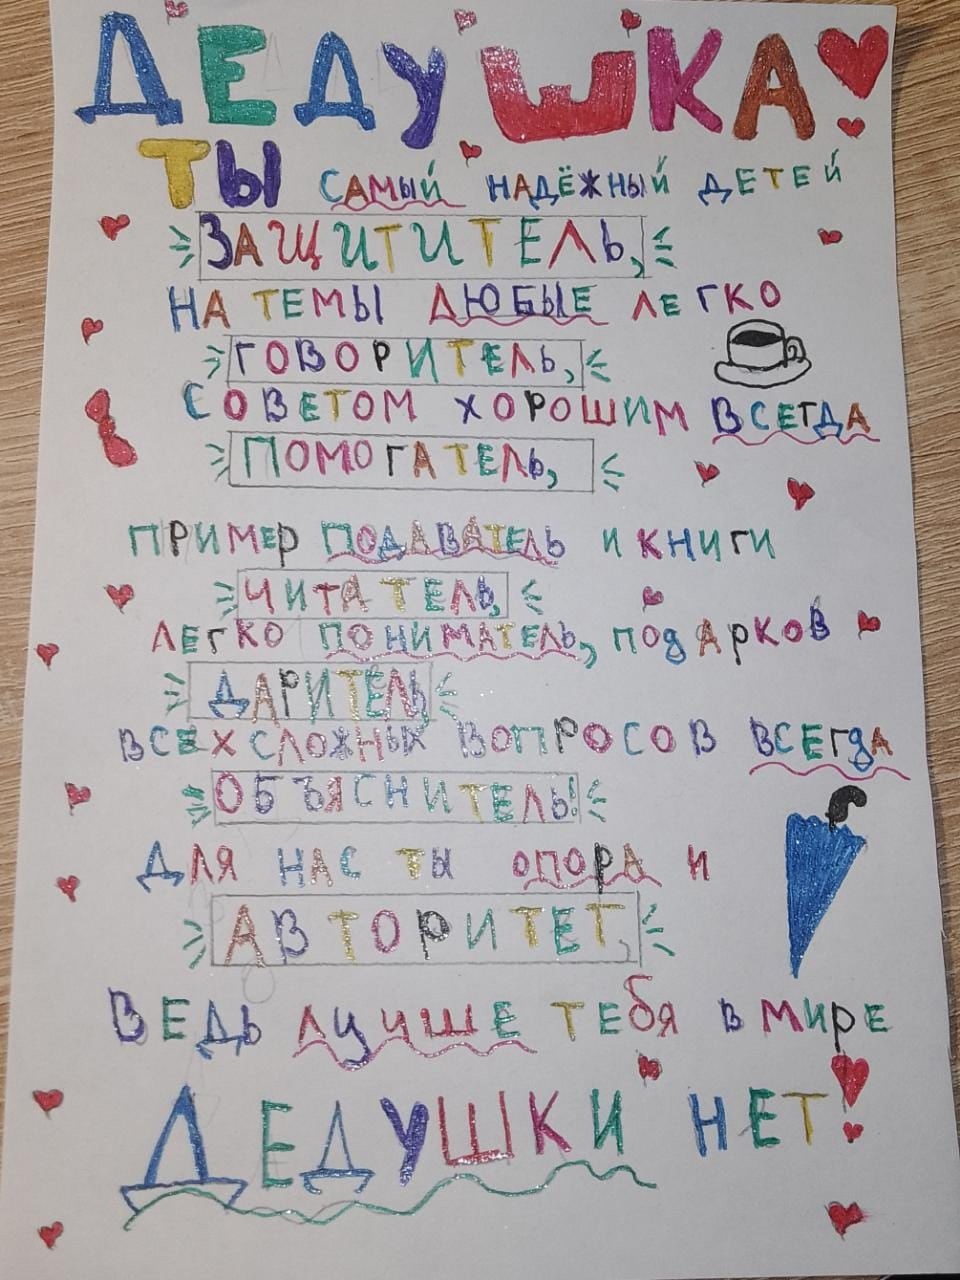 ДЕДУШКА!
ТЫ САМЫЙ НАДЁЖНЫЙ ДЕТЕЙ
ЗАЩИТИТЕЛЬ,
НА ТЕМЫ ЛЮБЫЕ ЛЕГКО
ГОВОРИТЕЛЬ,
СОВЕТОМ ХОРОШИМ ВСЕГДА
ПОМОГАТЕЛЬ,
ПРИМЕР ПОДАВАТЕЛЬ И КНИГИ
ЧИТАТЕЛЬ,
ЛЕГКО ПОНИМАТЕЛЬ, ПОДАРКОВ
ДАРИТЕЛЬ
ВСЕХ СЛОЖНЫХ ВОПРОСОВ ВСЕГДА
ОБЪЯСНИТЕЛЬ!
ДЛЯ НАС ТЫ ОПОРА И
АВТОРИТЕТ,
ВЕДЬ ЛУЧШЕ ТЕБЯ В МИРЕ
ДЕДУШКИ НЕТ!